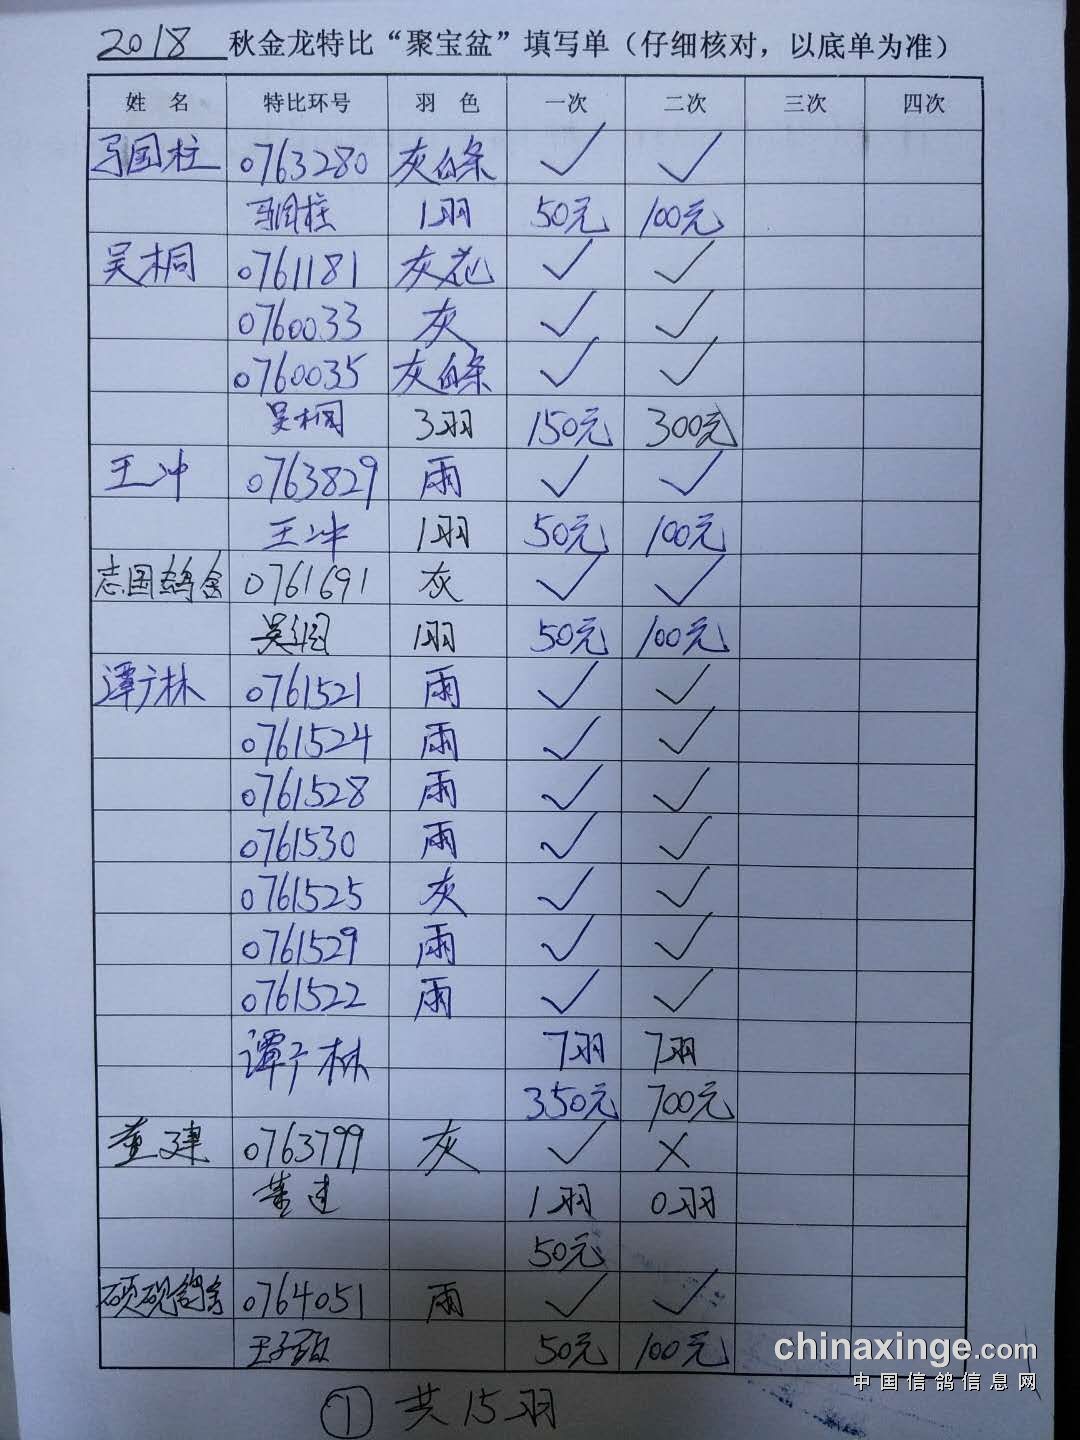 2018 秋金龙特比“聚宝盆”填写单（仔细核对，以底单为准）
姓 名 特比环号 羽 色 一次 二次 三次 四次
马国柱 0763280 灰白条 ✓ ✓
马国柱 1羽 50元 100元
吴桐 0761181 灰花 ✓ ✓
0760033 灰 ✓ ✓
0760035 灰白条 ✓ ✓
吴桐 3羽 150元 300元
王冲 0763829 雨 ✓ ✓
王冲 1羽 50元 100元
志国鸽舍 0761691 灰 ✓ ✓
1羽 50元 100元
谭广林 0761521 雨 ✓ ✓
0761524 雨 ✓ ✓
0761528 雨 ✓ ✓
0761530 雨 ✓ ✓
0761525 灰 ✓ ✓
0761529 雨 ✓ ✓
0761522 雨 ✓ ✓
谭广林 7羽 7羽
350元 700元
董建 0763799 灰 ✓ ×
董建 1羽 0羽
50元
硕砚鸽舍 0764051 雨 ✓ ✓
50元 100元
① 共15羽
chinaxinge.com
中国信鸽信息网